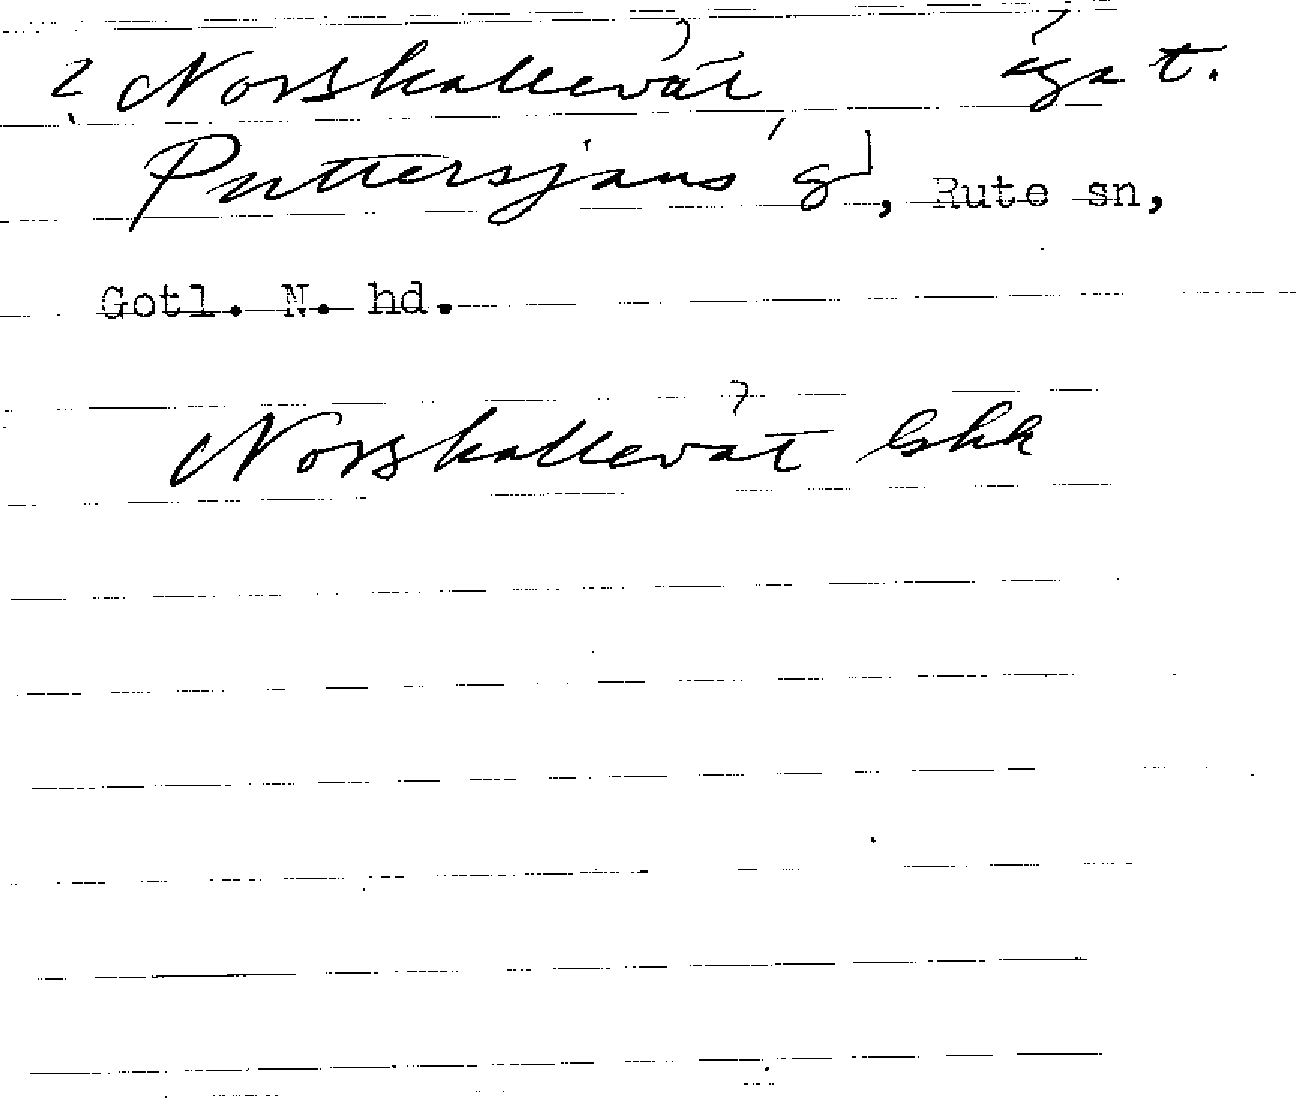 ? Norskallevät äga t.
Puttersjaus gd, Rute sn,
Gotl. N. hd.
Norskallevät